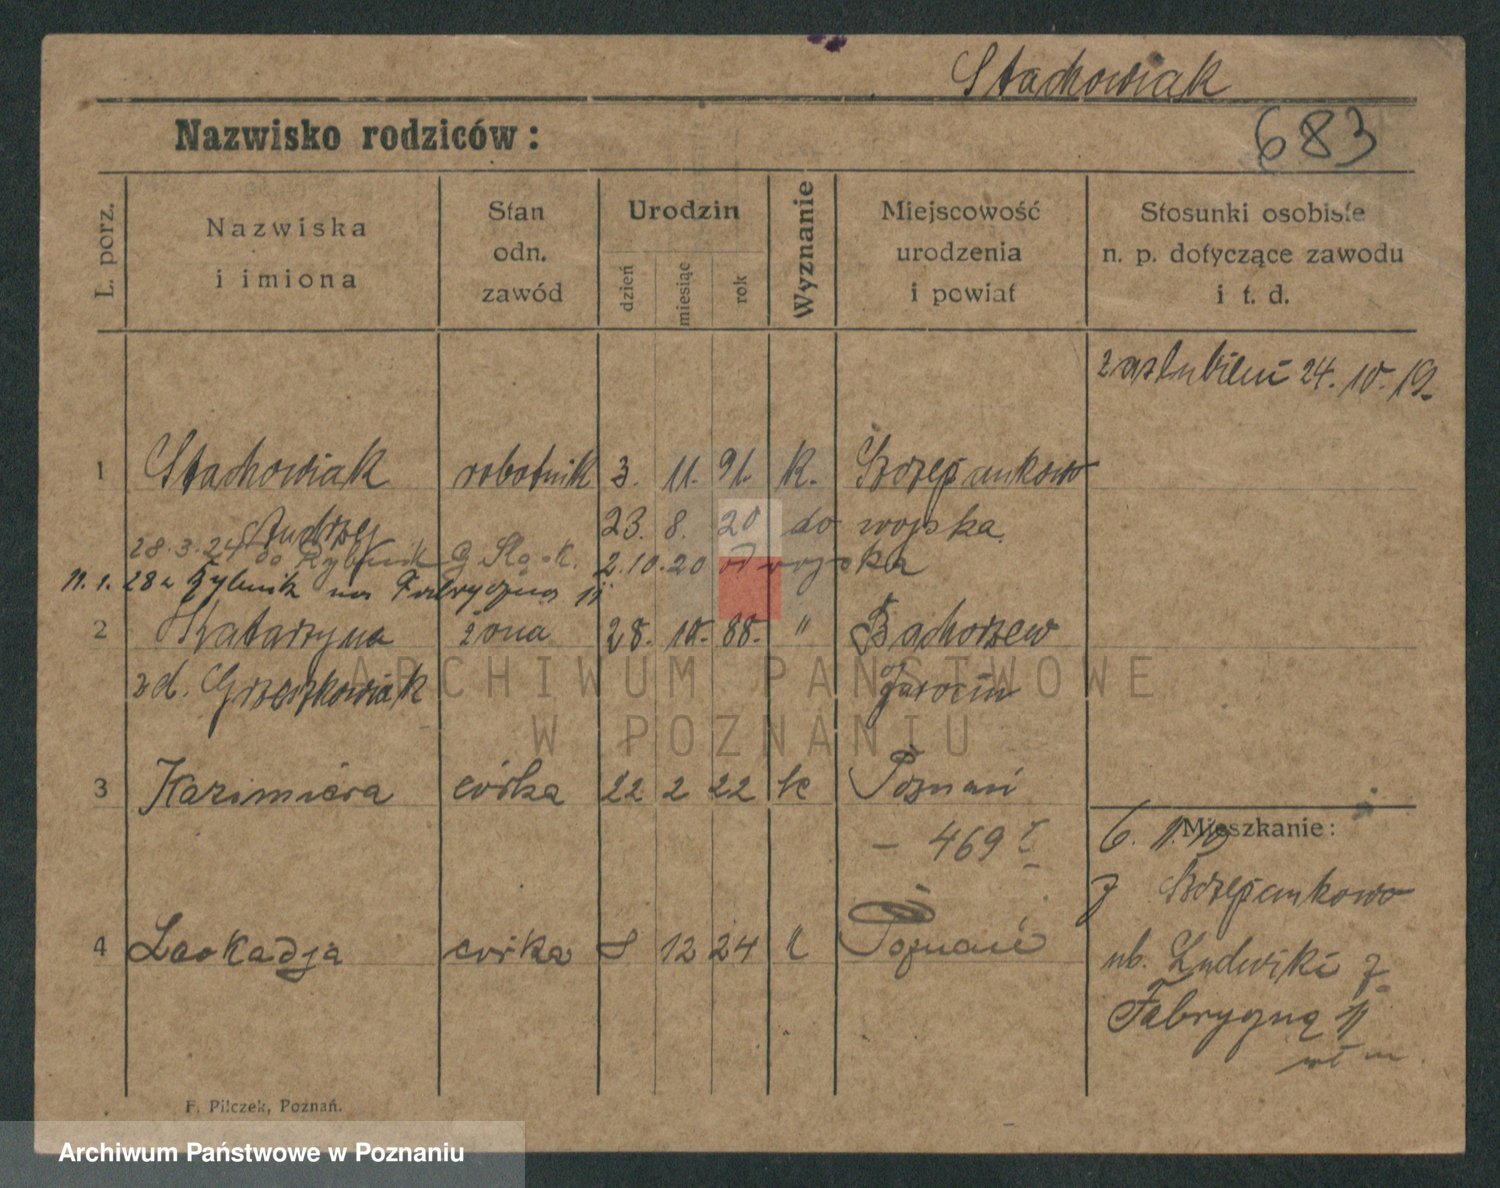 Stachowiak
Nazwisko rodziców:
683
L. porz.
Nazwiska
i imiona
Stan
odn.
zawód
Urodzin
dzień
miesiąc
rok
Wyznanie
Miejscowość
urodzenia
i powiat
Stosunki osobiste
n. p. dotyczące zawodu
i t. d.
zaślubieni 24. 10. 19.
1 Stachowiak robotnik 3. 11. 91. K. Szczepankowo
Andrzej 23. 8. 20 do wojska
28.3.24 do Rybnik G. Sląsk. 2.10.20 od wojska
11.1.28 z Rybnik na Fabryczna 11
2 Katarzyna żona 28. 10. 88. " Bachorzew
zd. Grzeszkowiak Jarocin
ARCHIWUM PAŃSTWOWE
W POZNANIU
3 Kazimiera córka 22 2 22 k Poznań
Mieszkanie:
6. 11. 19
– 469
z Szczepankowo
4 Leokadja córka 8 12 24 " Poznań
ub. Ludwiki z
Fabryczną 11
F. Pilczek, Poznań.
Archiwum Państwowe w Poznaniu